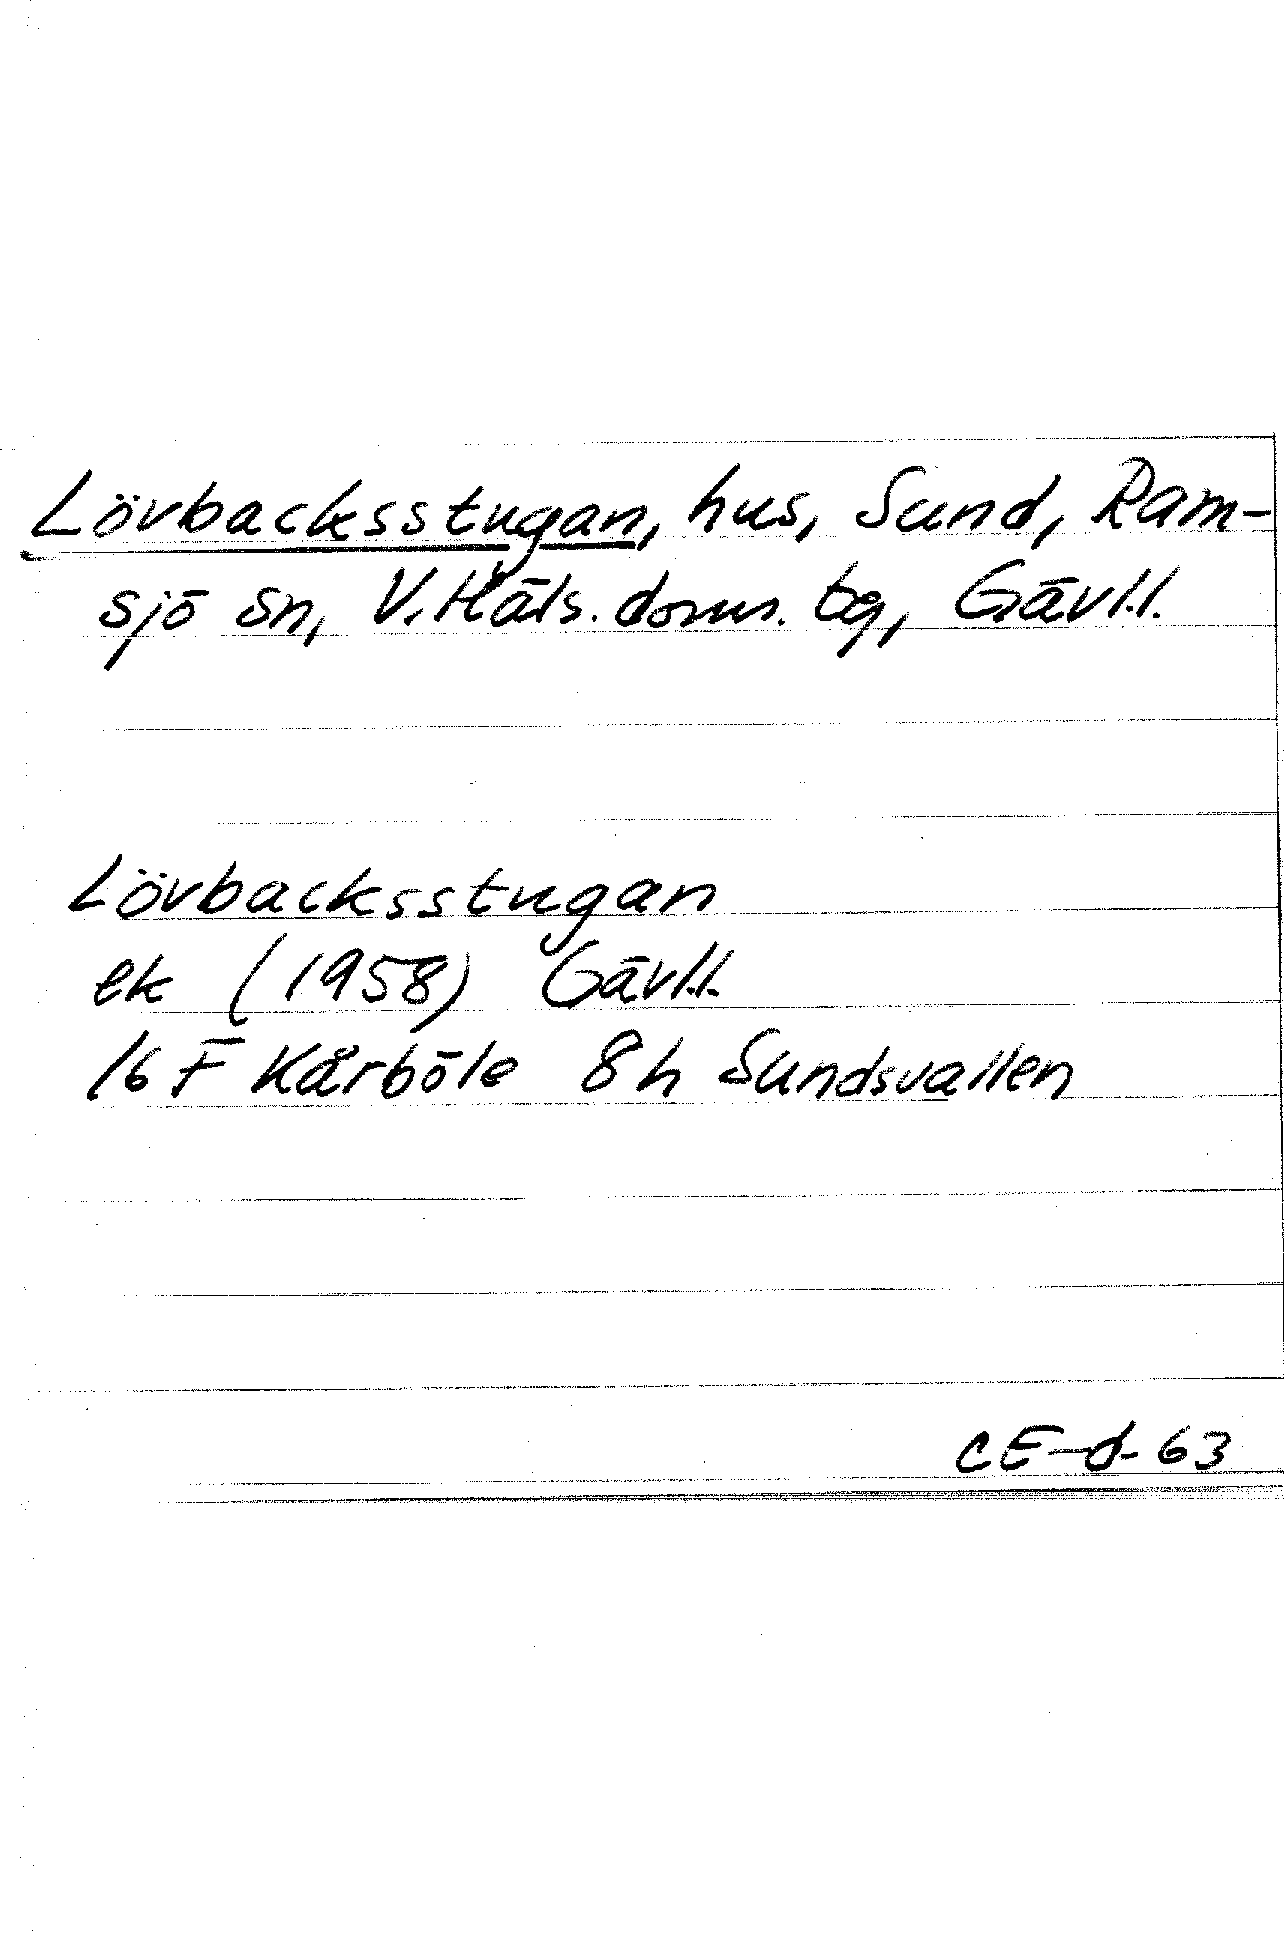 Lövbacksstugan, hus, Sund, Ram-
sjö sn, V. Häls. doms. tg, Gävl.l.
Lövbacksstugan
ek (1958) Gävl.l.
16 F Kårböle 8h Sundsvallen
CE-d-63